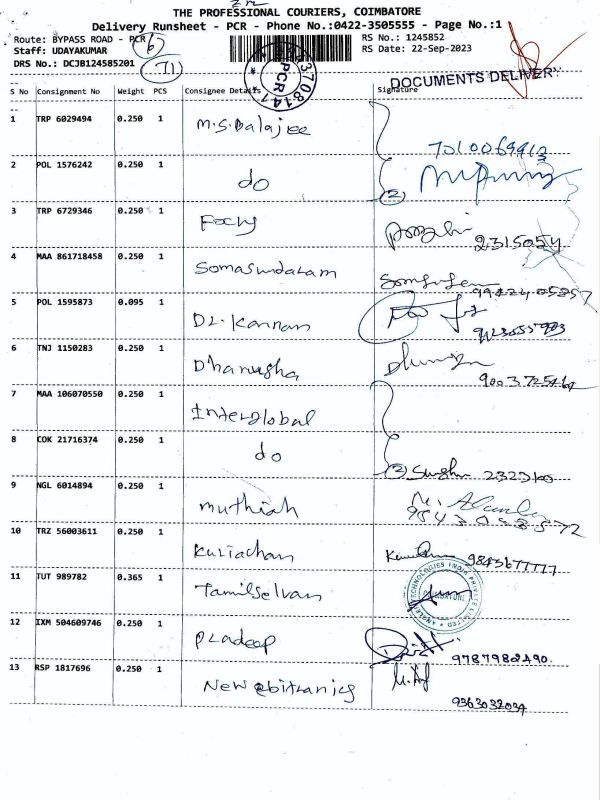 THE PROFESSIONAL COURIERS, COIMBATORE
Delivery Runsheet - PCR - Phone No.:0422-3505555 - Page No.:1
Route: BYPASS ROAD - PCR
RS No.: 1245852
Staff: UDAYAKUMAR
RS Date: 22-Sep-2023
DRS No.: DCJB124585201
71
DOCUMENTS DELIVER
S No Consignment No Weight PCS Consignee Details Signature
1 TRP 6029494 0.250 1 M.S.Balajee
2 POL 1576242 0.250 1 do (2)
3 TRP 6729346 0.250 1
4 MAA 861718458 0.250 1 Somasundaram
5 POL 1595873 0.095 1 Dr. Kannan
6 TNJ 1150283 0.250 1 Dhanusha
7 MAA 106070550 0.250 1 Interglobal
8 COK 21716374 0.250 1 do (2)
9 NGL 6014894 0.250 1 muthiah
10 TRZ 56003611 0.250 1 Kuriachan 9843677777
11 TUT 989782 0.365 1 Tamilselvan
12 IXM 504609746 0.250 1 Pradeep 9787982490
13 RSP 1817696 0.250 1 New 9363032034